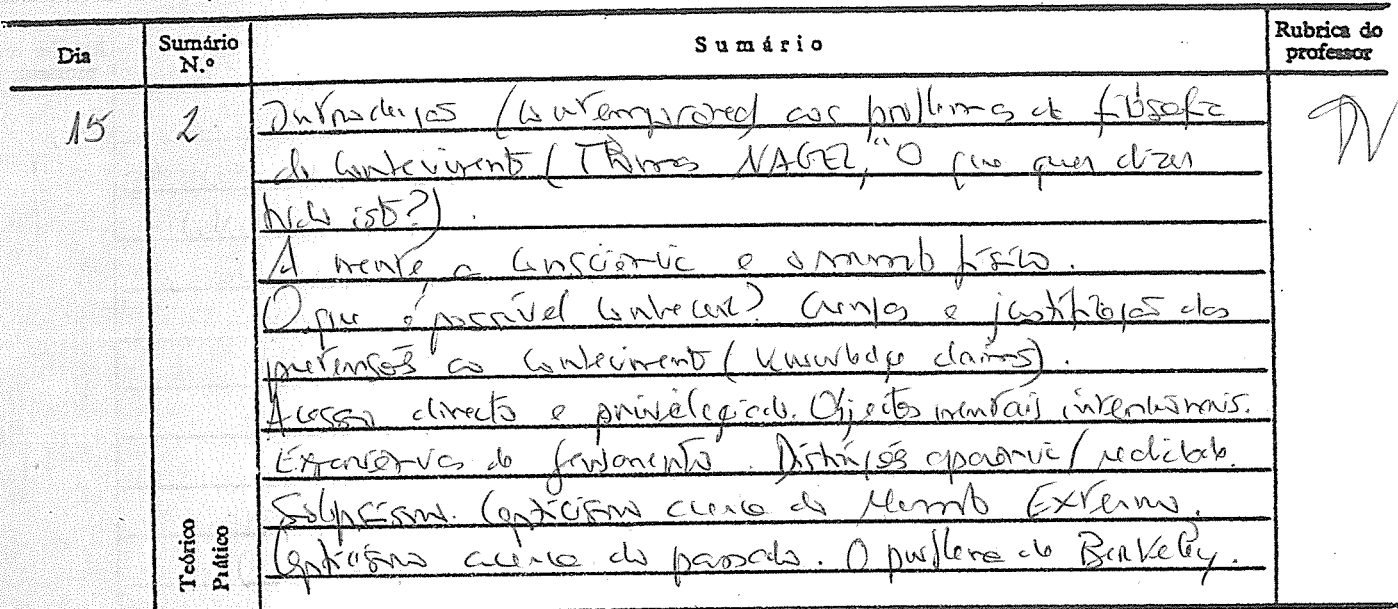 Dia Sumário N.º Sumário Rubrica do professor
15 2 Introdução (contemporânea) aos problemas da filosofia
do conhecimento (Thomas NAGEL, "O que quer dizer
tudo isto?).
A mente, a consciência e o mundo físico.
O que é possível conhecer? Crenças e justificação das
pretensões ao conhecimento (knowledge claims).
Acesso directo e privilegiado. Objectos mentais intencionais.
do fenómeno. Distinção aparência/realidade.
Solipsismo. Cepticismo acerca do Mundo Externo.
Cepticismo acerca do passado. O problema de Berkeley.
Teórico
Prático